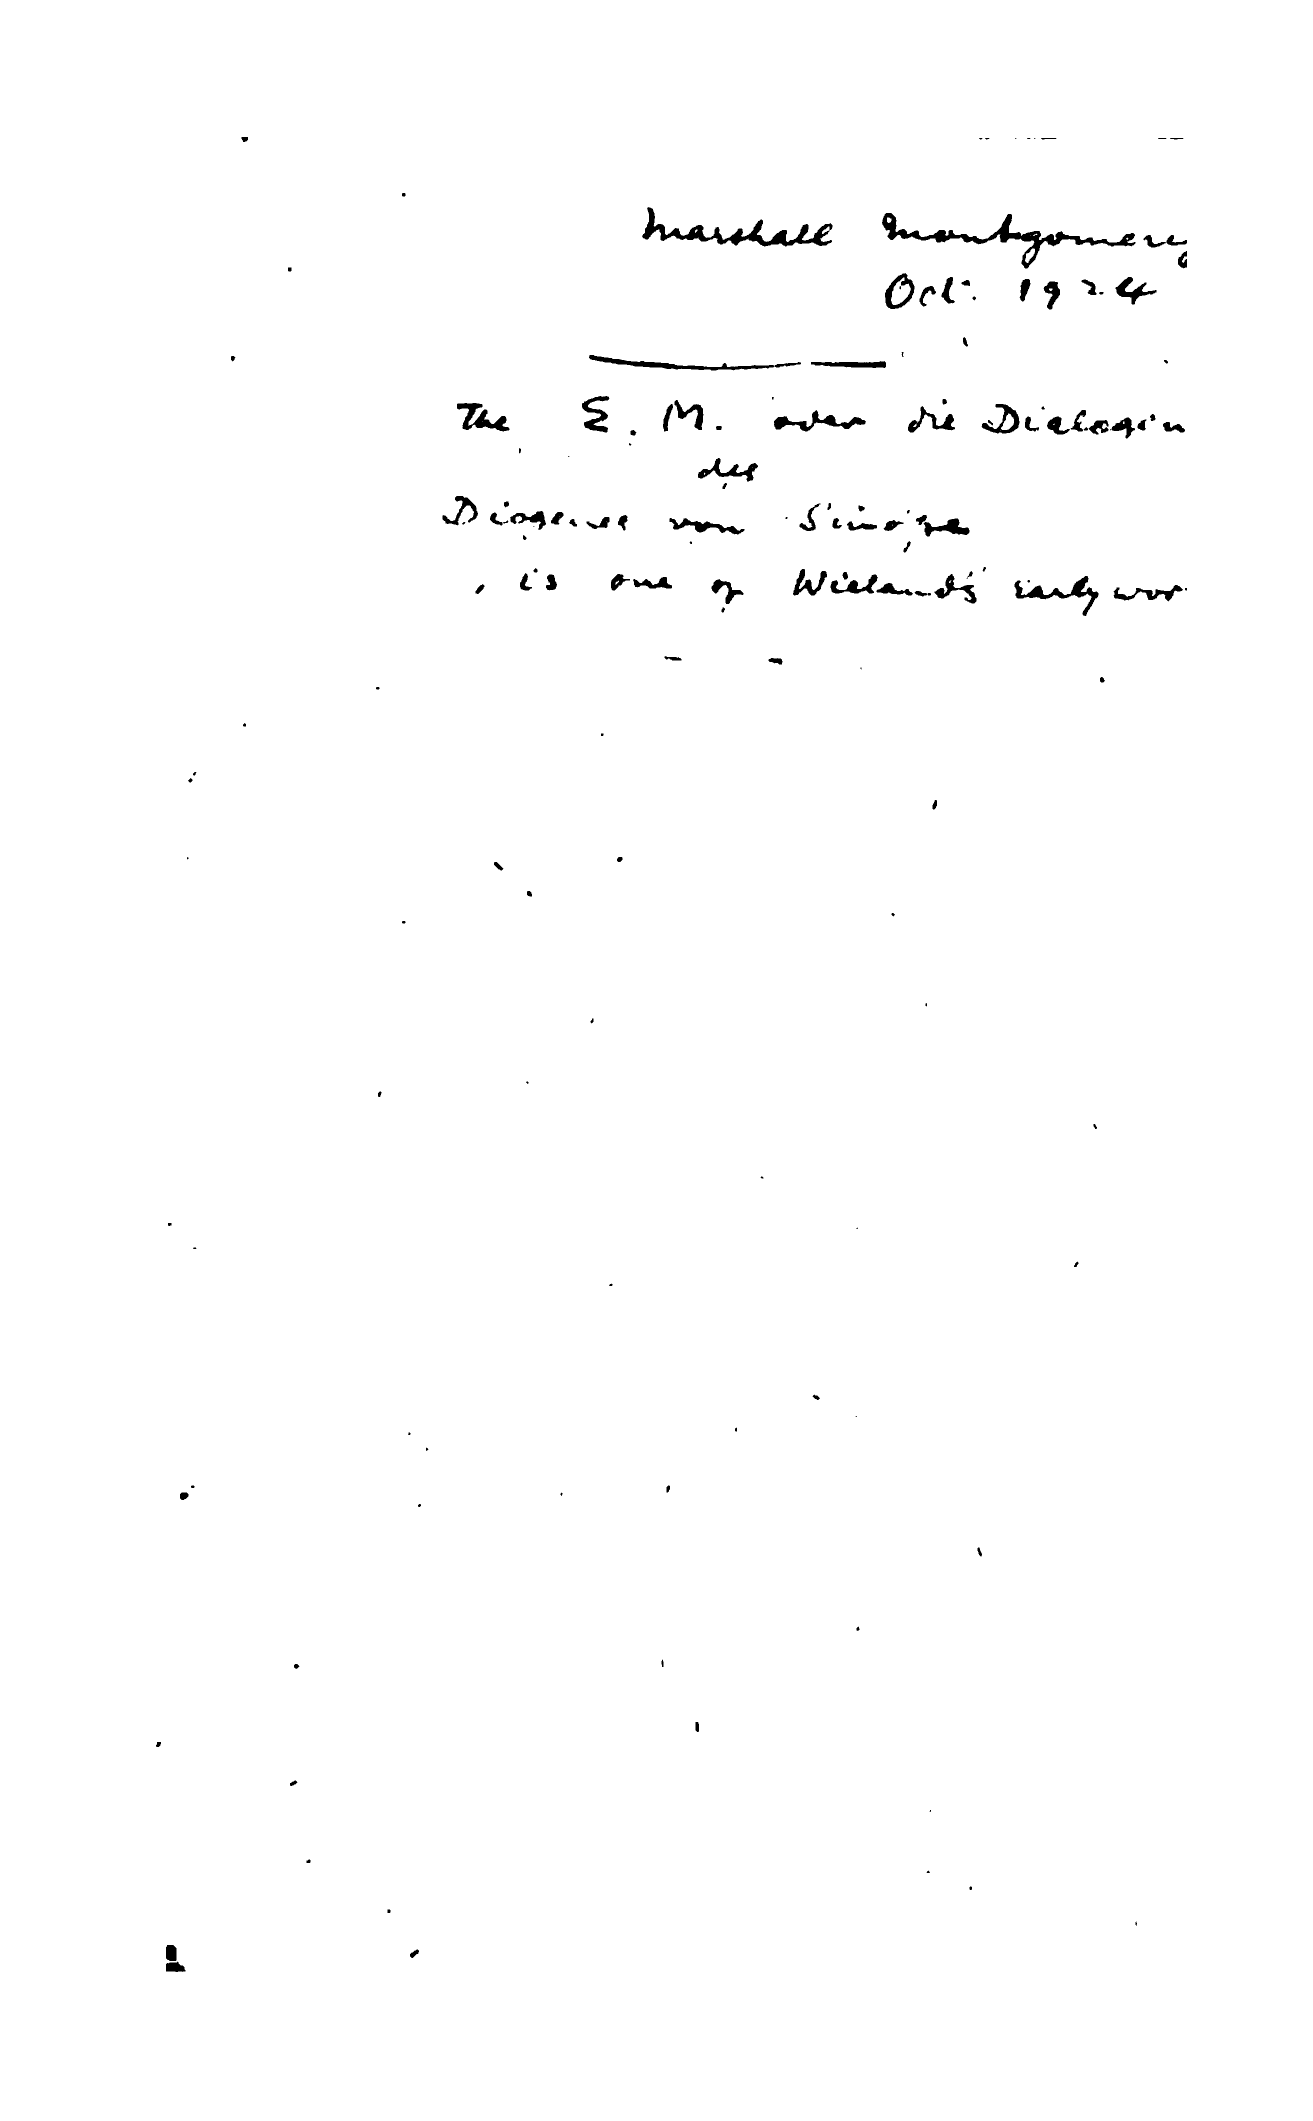 Marshall Montgomery
Oct. 1924
The Σ. M. oder die Dialogen
des
Diogenes von Sinope
, is one of Wieland's early wor